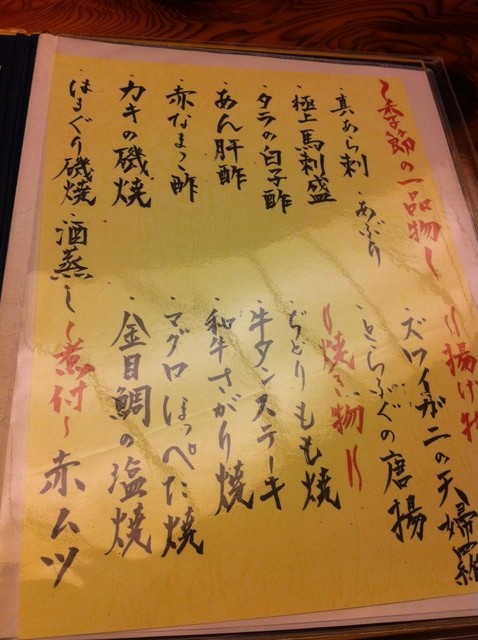 〜季節の一品物〜
・真あら刺 あぶり
・極上馬刺盛
・タラの白子酢
・あん肝酢
・赤なまこ酢
・カキの磯焼
・はまぐり磯焼 酒蒸し
〃揚げ物
ズワイガニの天婦羅
・とらふぐの唐揚
〃焼き物〃
・ぢどりもも焼
・牛タンステーキ
・和牛さがり焼
・マグロほっぺた焼
・金目鯛の塩焼
〜煮付〜 赤ムツ